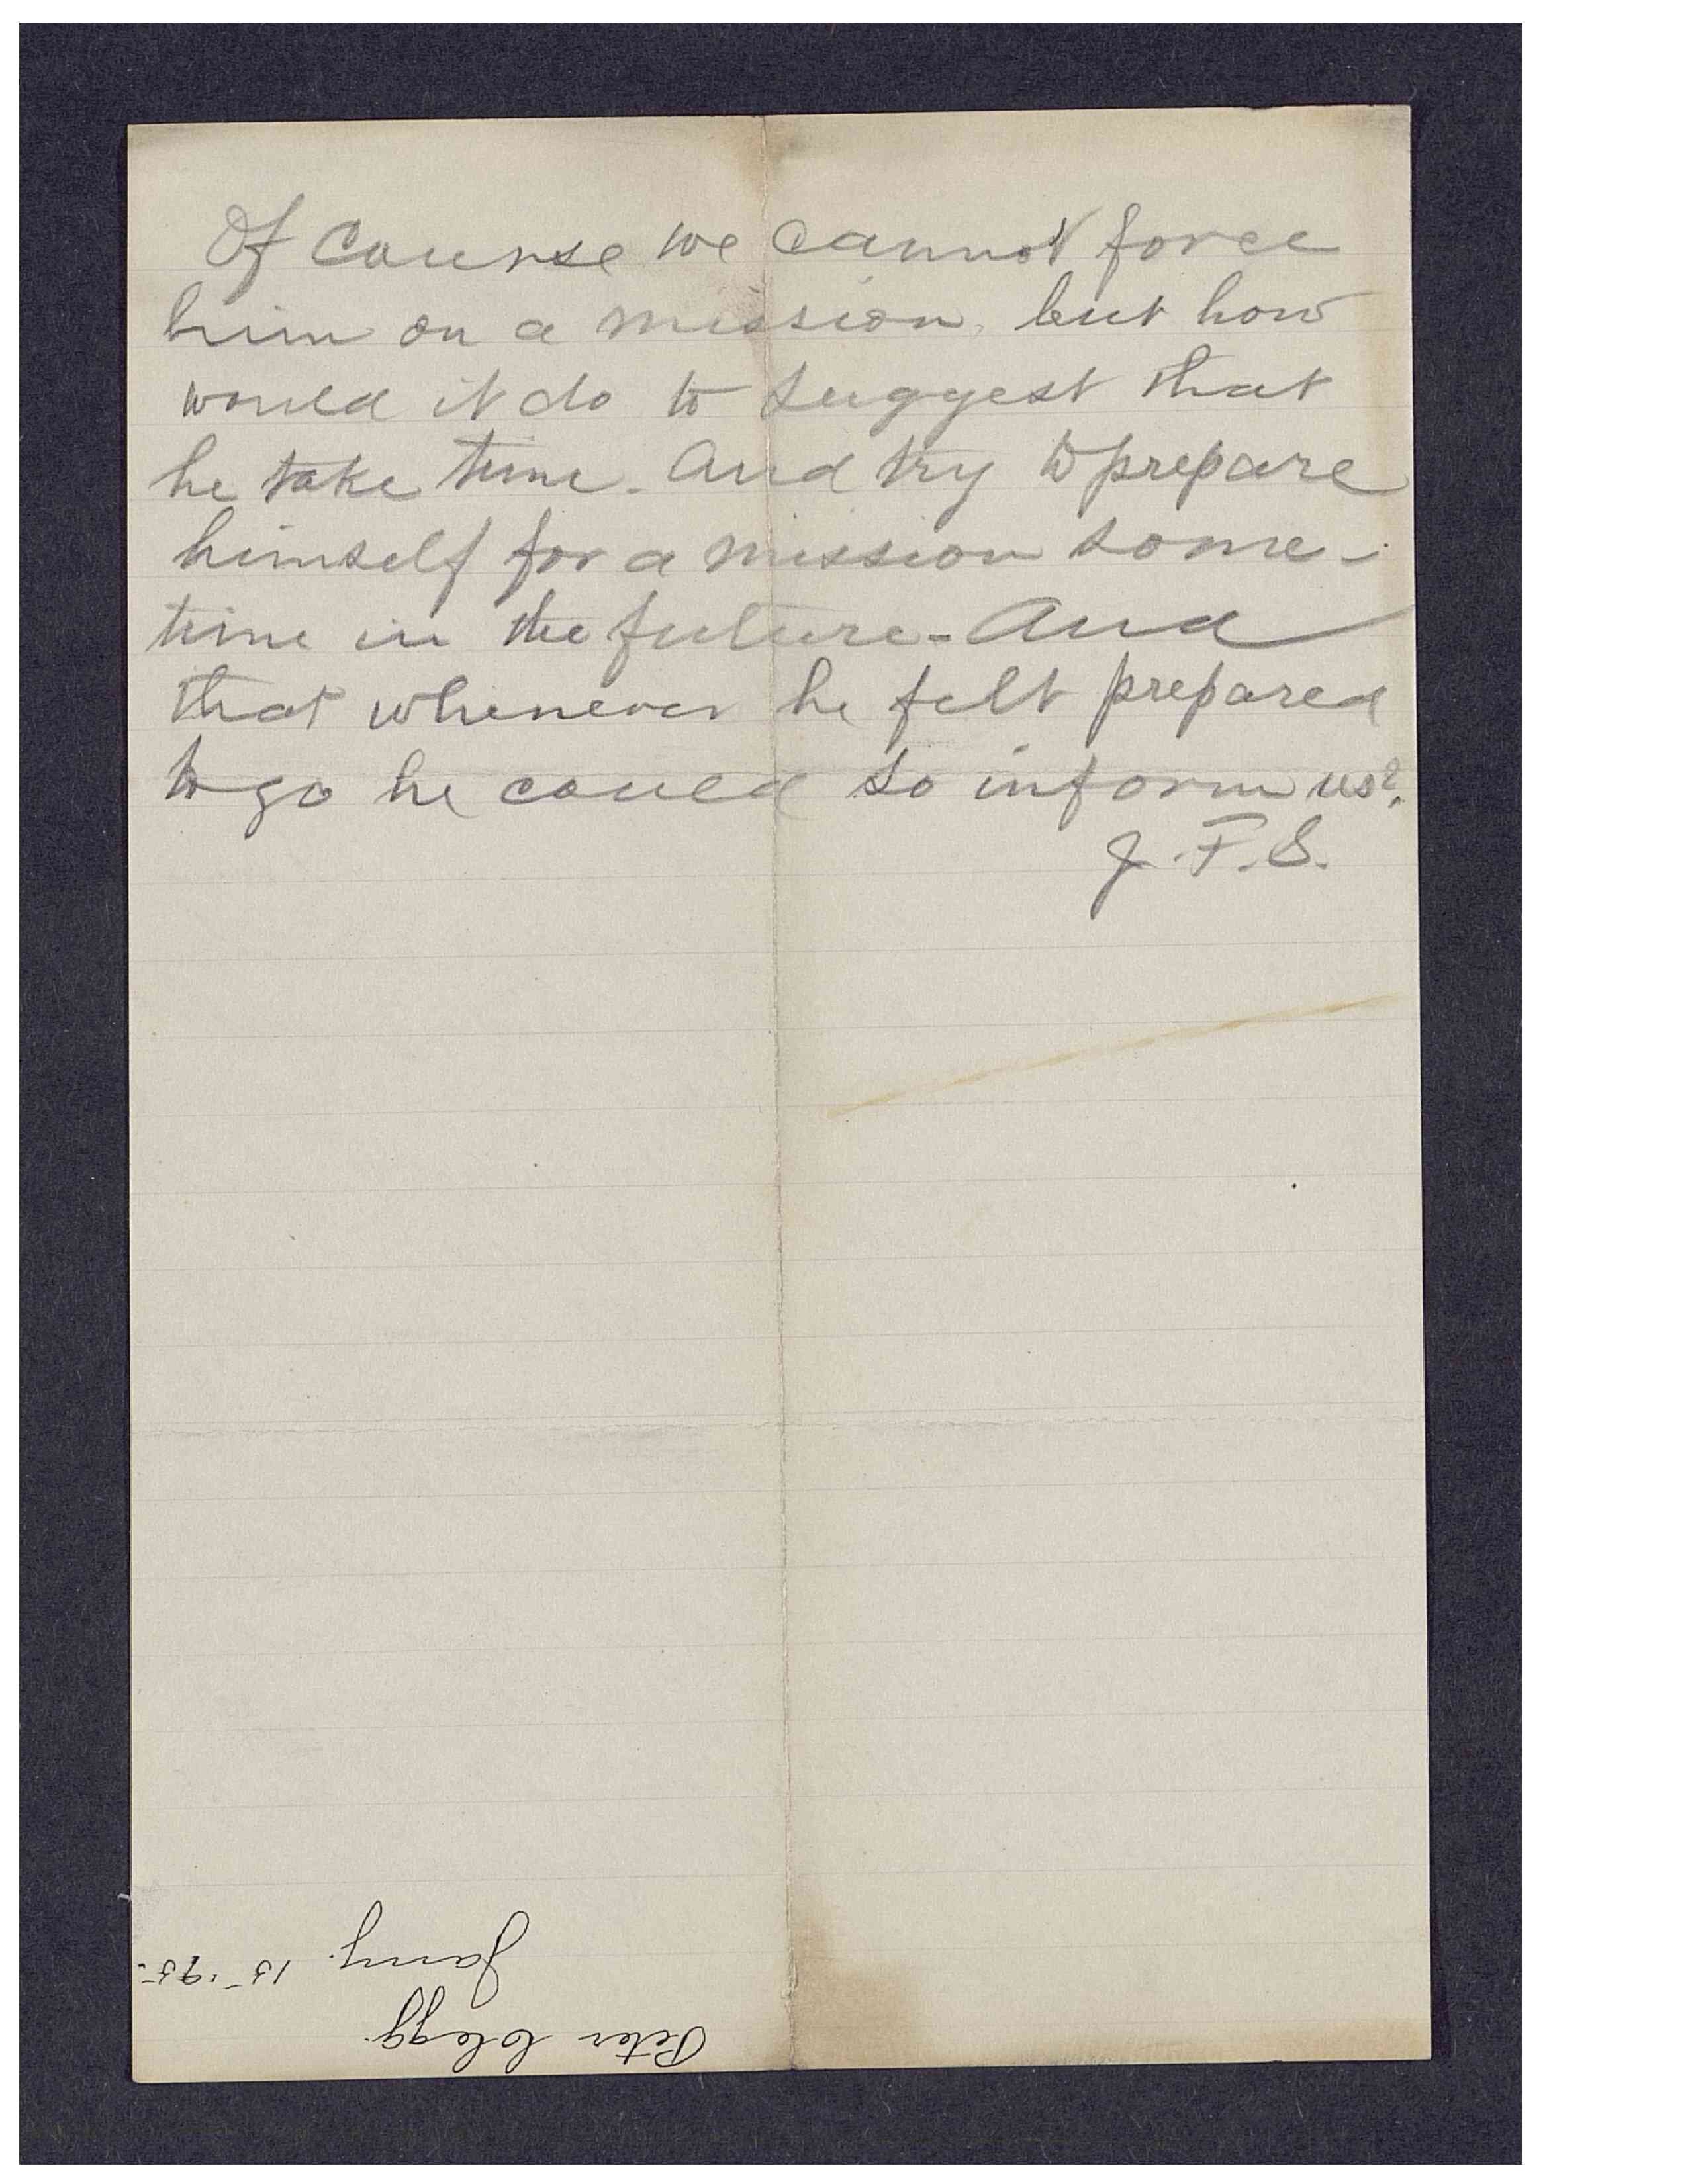 Of Course we cannot force
him on a mission, but how
would it do to suggest that
he take time. And try to prepare
himself for a mission some-
time in the future - And
that whenever he felt prepared
to go he could so inform us?
J. F. S.
Peter Clegg.
Jany. 15 '95.